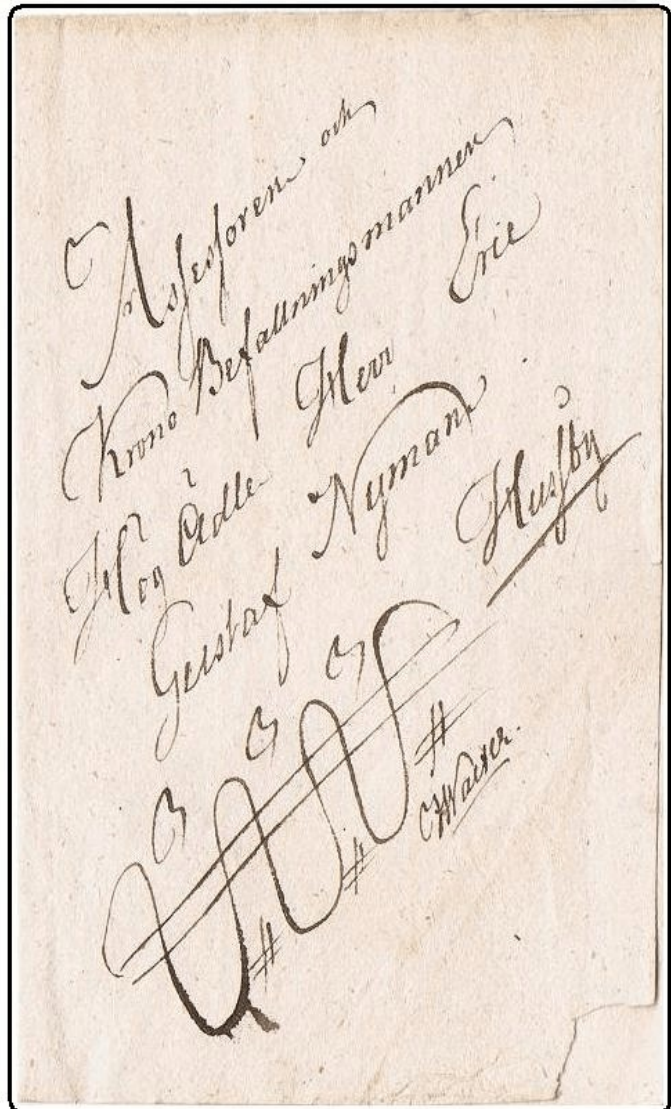 Assessoren och
Krono Befallningsmannen
Hög Ädle Herr Eric
Gustaf Nyman
Hussby